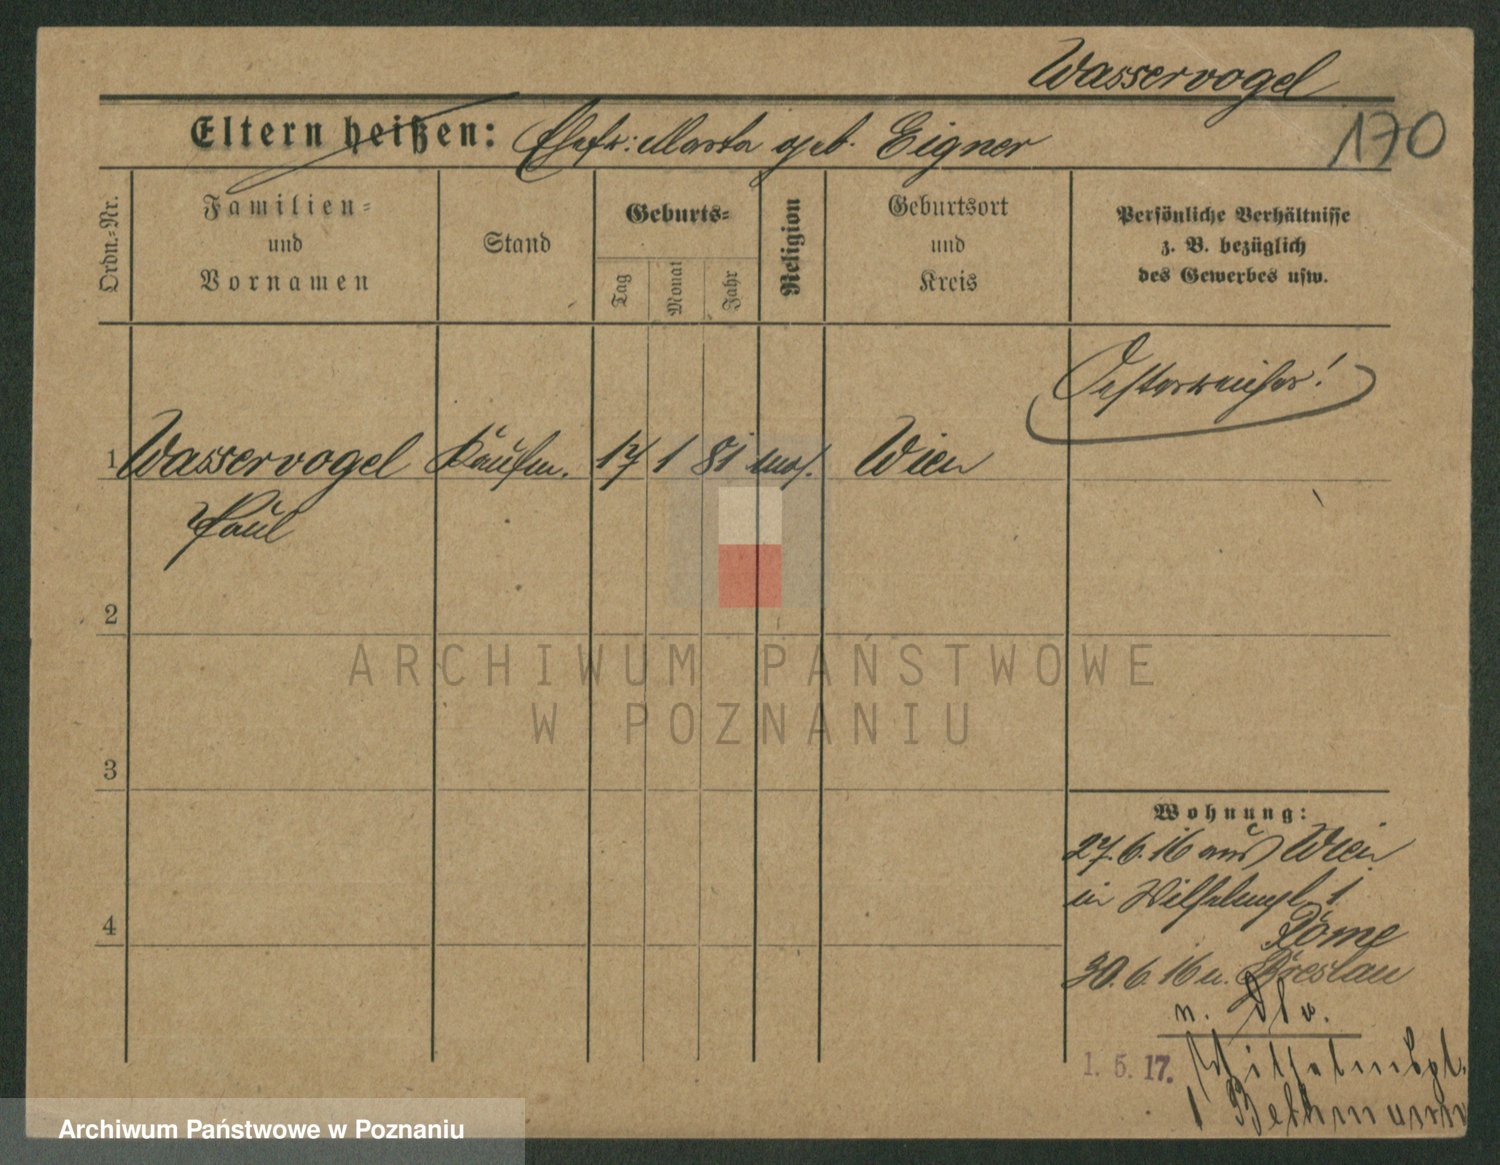 Wasservogel
170
Eltern heißen: Ehefr: Marta geb. Eigner
Ordn.-Nr.
Familien-
und
Vornamen
Stand
Geburts-
Tag
Monat
Jahr
Religion
Geburtsort
und
Kreis
Persönliche Verhältnisse
z. B. bezüglich
des Gewerbes usw.
Oesterreicher!
1 Wasservogel Kaufm. 17 1 81 mos. Wien
Paul
2
3
4
Wohnung:
27.6.16 aus Wien
in Wilhelmpl. 1
Rome
30.6.16 n. Breslau
n.
1. 5. 17. Wilhelmspl.
1 Bethmann
ARCHIWUM PAŃSTWOWE
W POZNANIU
Archiwum Państwowe w Poznaniu